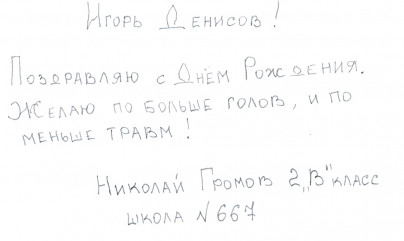 Игорь Денисов!
Поздравляю с Днём Рождения.
Желаю по больше голов, и по
меньше травм!
Николай Громов 2 „В" класс
школа N 667